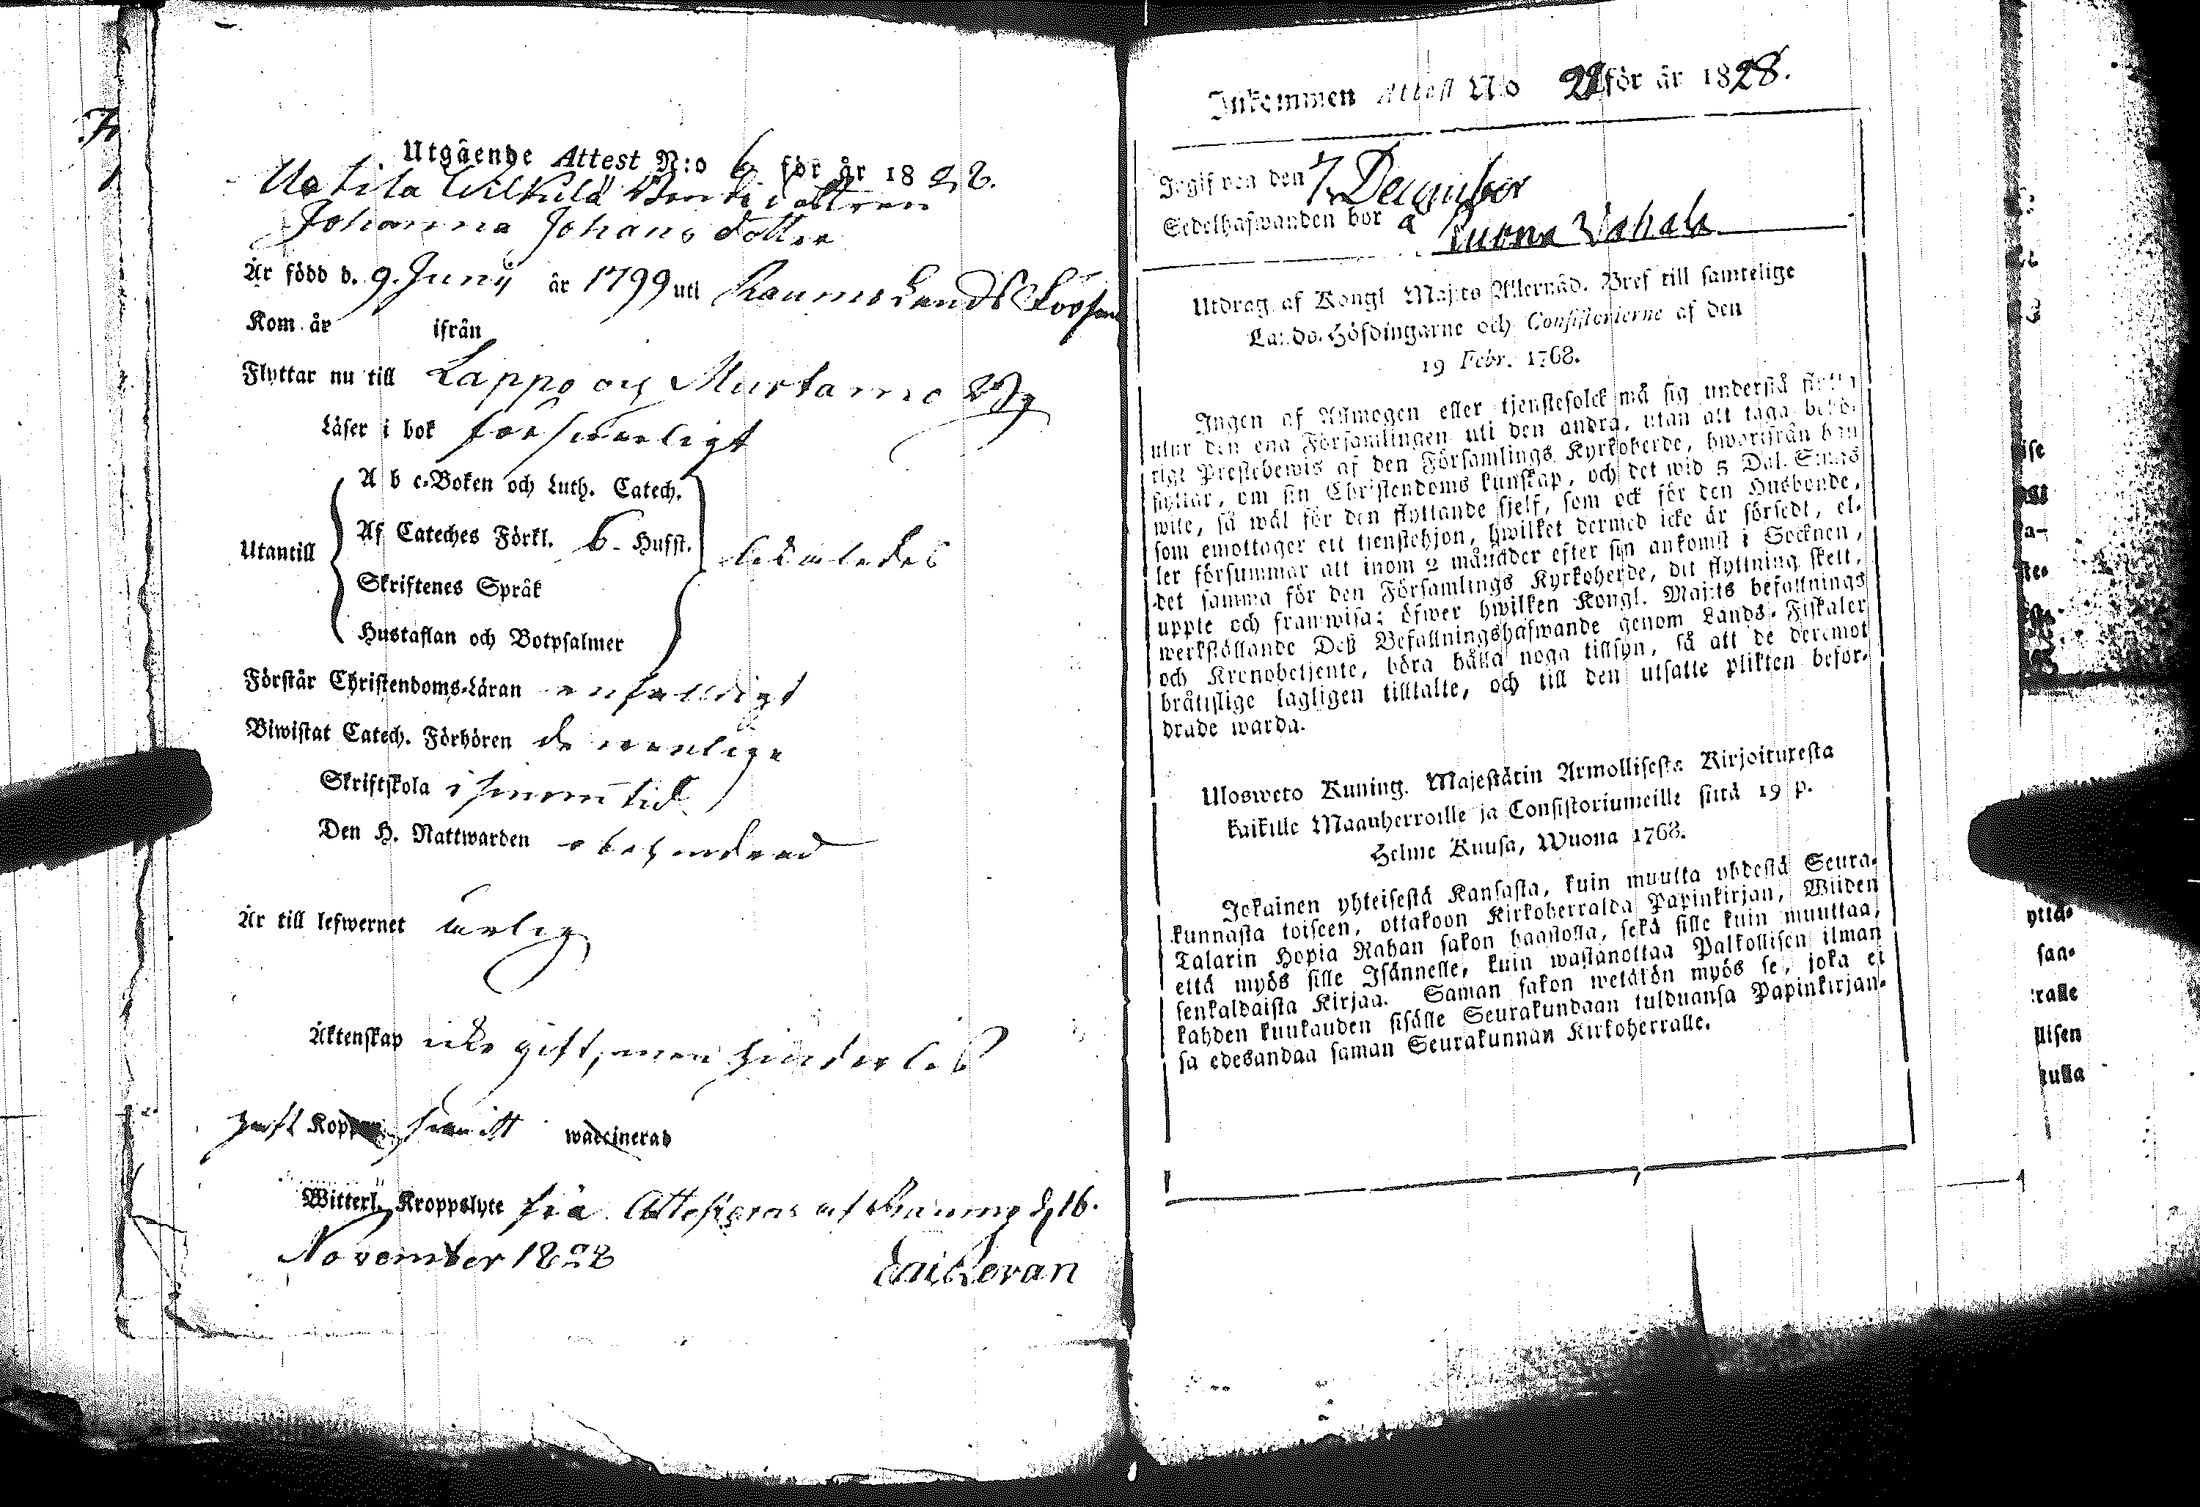 Utgående Attest N:o 6 för år 1828.
Johanna Johansdotter
Är född d. 9. Junij år 1799 uti Raumo Lands
Kom år ifrån
Flyttar nu till Lappo och Murtamo By
Läser i bok försvarligt
A b c-Boken och Luth. Catech.
Af Cateches Förkl. 6. Hufst.
Utantill likaledes
Skriftenes Språk
Hustaflan och Botpsalmer
Förstår Christendoms-Läran enfaldigt
Biwistat Catech. Förhören de vanlige
Skriftskola i sinom tid
Den H. Nattwarden obehindrad
Är till lefwernet ärlig
Äktenskap icke gift, men hinderlös
haft Koppor waccinerad
Witterl. Kroppslyte fria. Attesteras af Raumo d. 16.
November 1828
Inkommen Attest No för år 1828.
Ingifven den 7 December
Sedelhafwanden bor å
Utdrag af Kongl Maj:ts Allernåd. Bref till samtelige
Lands-Höfdingarne och Consistorierne af den
19 Febr. 1768.
Ingen af Allmogen eller tjenstefolck må sig understå flytta
utur den ena Församlingen uti den andra, utan att taga behö-
rigt Prestebewis af den Församlings Kyrkoherde, hwarifrån han
flyttar, om sin Christendoms kunskap, och det wid 5 Dal. Smts
wite, så wäl för den flyttande sjelf, som ock för den Husbonde,
som emottager ett tjenstehjon, hwilket dermed icke är försedt, el-
ler försummar att inom 2 månader efter sin ankomst i Socknen,
det samma för den Församlings Kyrkoherde, dit flyttning skett,
uppte och framwisa; öfwer hwilken Kongl. Maj:ts befallnings
werkställande Deß Befallningshafwande genom Lands-Fiskaler
och Kronobetjente, böra hålla noga tillsyn, så att de deremot
bråtislige lagligen tilltalte, och till den utsatte plikten befor-
drade warda.
Ulosweto Kuning. Majestätin Armollisesta Kirjoituxesta
kaikille Maanherroille ja Consistoriumeille siitä 19 p.
Helme Kuusa, Wuona 1768.
Jokainen yhteisestä Kansasta, kuin muutta yhdestä Seura-
kunnasta toiseen, ottakoon Kirkoherralda Papinkirjan, Wiiden
Talarin Hopia Rahan sakon haastolla, sekä sille kuin muuttaa,
että myös sille Isännelle, kuin wastanottaa Palkollisen ilman
senkaldaista Kirjaa. Saman sakon wetäkön myös se, joka ei
kahden kuukauden sisälle Seurakundaan tulduansa Papinkirjan-
sa edesandaa saman Seurakunnan Kirkoherralle.
yttä-
saa-
ralle
llisen
tulla